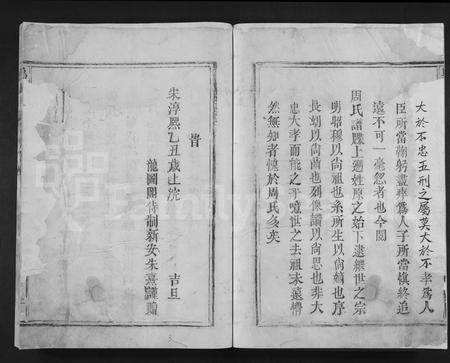 大於不忠五刑之屬莫大於不孝為人
臣所當鞠躬盡瘁為人子所當慎終追
遠不可一毫忽者也今閱
周氏譜牒上遡姓原之始下逮繼世之宗
明昭穆以尚祖也系所生以尚嫡也序
長幼以尚齒也列像讚以尚思也非大
忠大孝而能之乎噫世之去祖未遠懵
然無知者愧於周氏多矣
旹
宋淳熙乙丑歲上浣 吉旦
龍圖閣待制新安朱熹謹贈